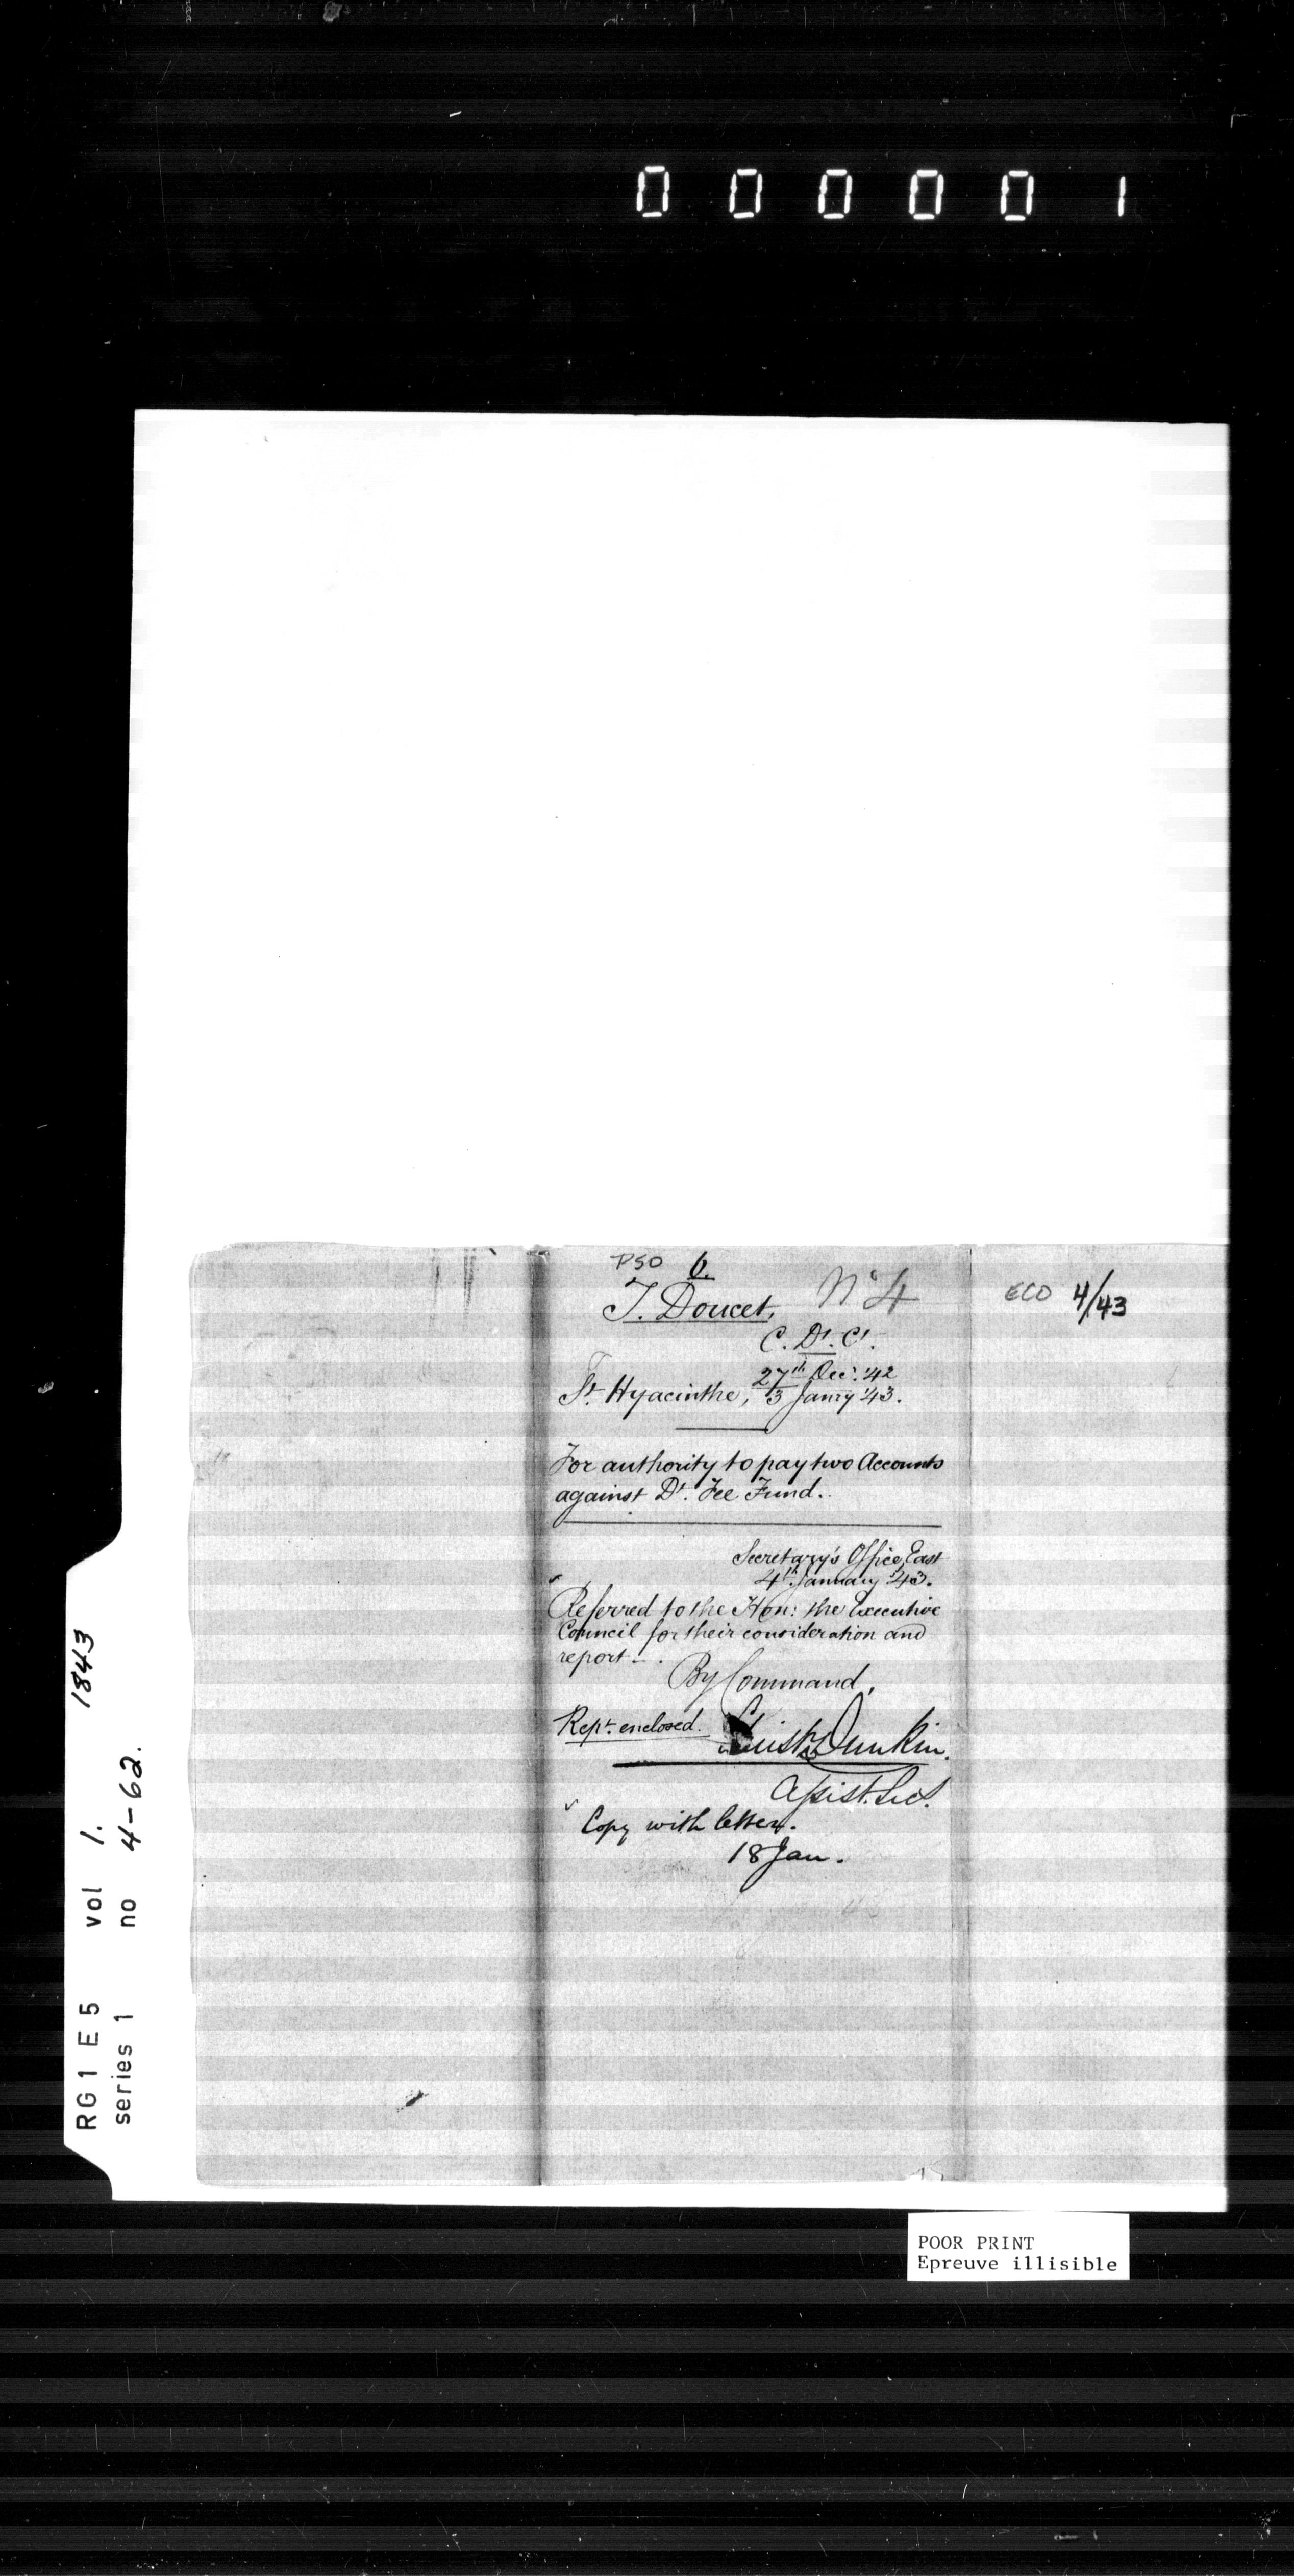 000001
PSO 6.
T. Doucet, No 4
C. Dt. Ct.
St. Hyacinthe, 27th Decr. '42
3 Janry '43.
For authority to pay two Accounts
against Dt. Fee Fund.
Secretary's Office, East
4th January '43.
Referred to the Hon: the Executive
Council for their consideration and
report.
By Command,
Rept. enclosed.
Christ. Dunkin.
Assist. Sec.
Copy with letter.
18 Jan.
ECO 4/43
RG1 E5 vol 1. 1843
series 1 no 4-62.
POOR PRINT
Epreuve illisible